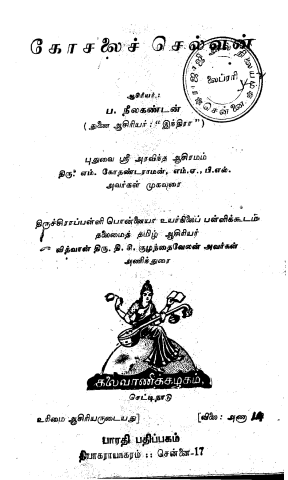 கோசலைச் செல்வன்
லைப்ரரி
சென்னை
ஆசிரியர்:
ப. நீலகண்டன்
(துணை ஆசிரியர்: "இந்திரா")
புதுவை ஸ்ரீ அரவிந்த ஆசிரமம்
திரு எம். கோதண்டராமன், எம்.ஏ., பி.எல்.
அவர்கள் முகவுரை
திருச்சிராப்பள்ளி பொன்னையா உயர்நிலைப் பள்ளிக்கூடம்
தலைமைத் தமிழ் ஆசிரியர்
வித்வான் திரு. தி. சி. குழந்தைவேலன் அவர்கள்
அணிந்துரை
கலைவாணிக்கழகம்.
செட்டிநாடு
உரிமை ஆசிரியருடையது] [விலை: அணா
பாரதி பதிப்பகம்
தியாகராயநகரம் :: சென்னை-17